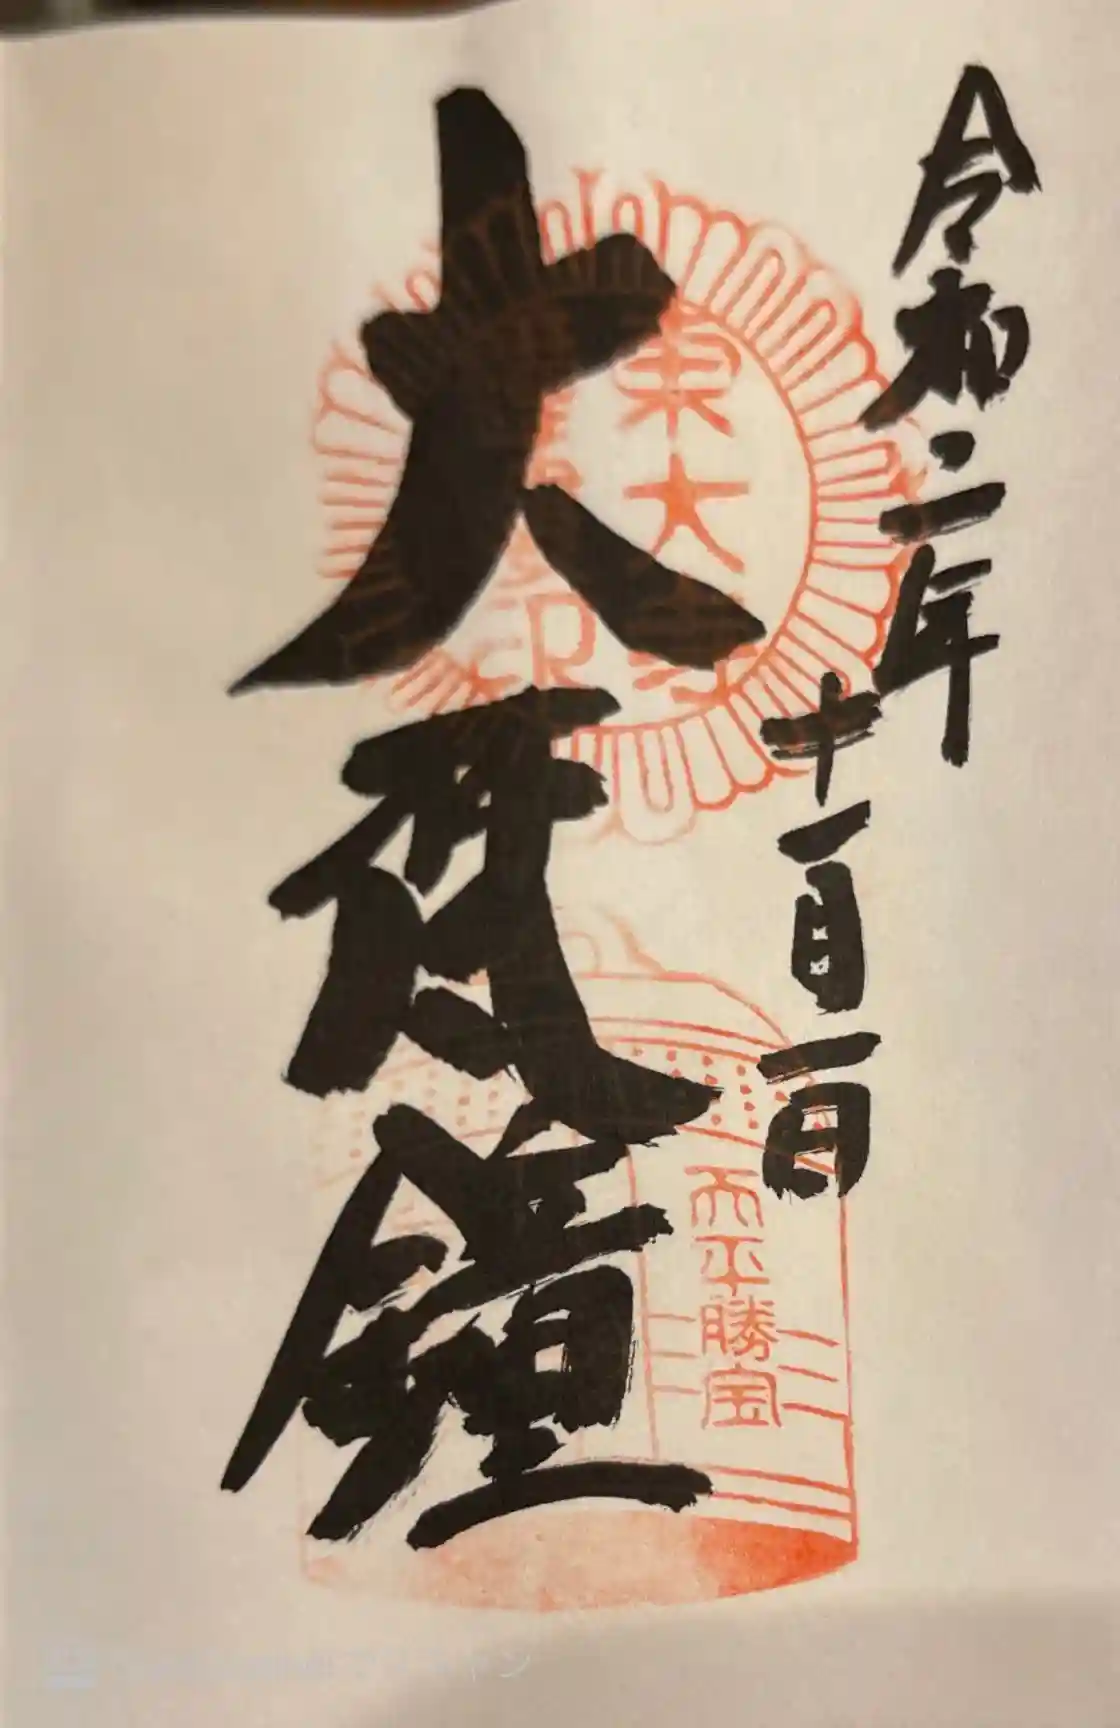 令和二年
十一月一日
大梵鐘
東大寺
印
天平勝宝